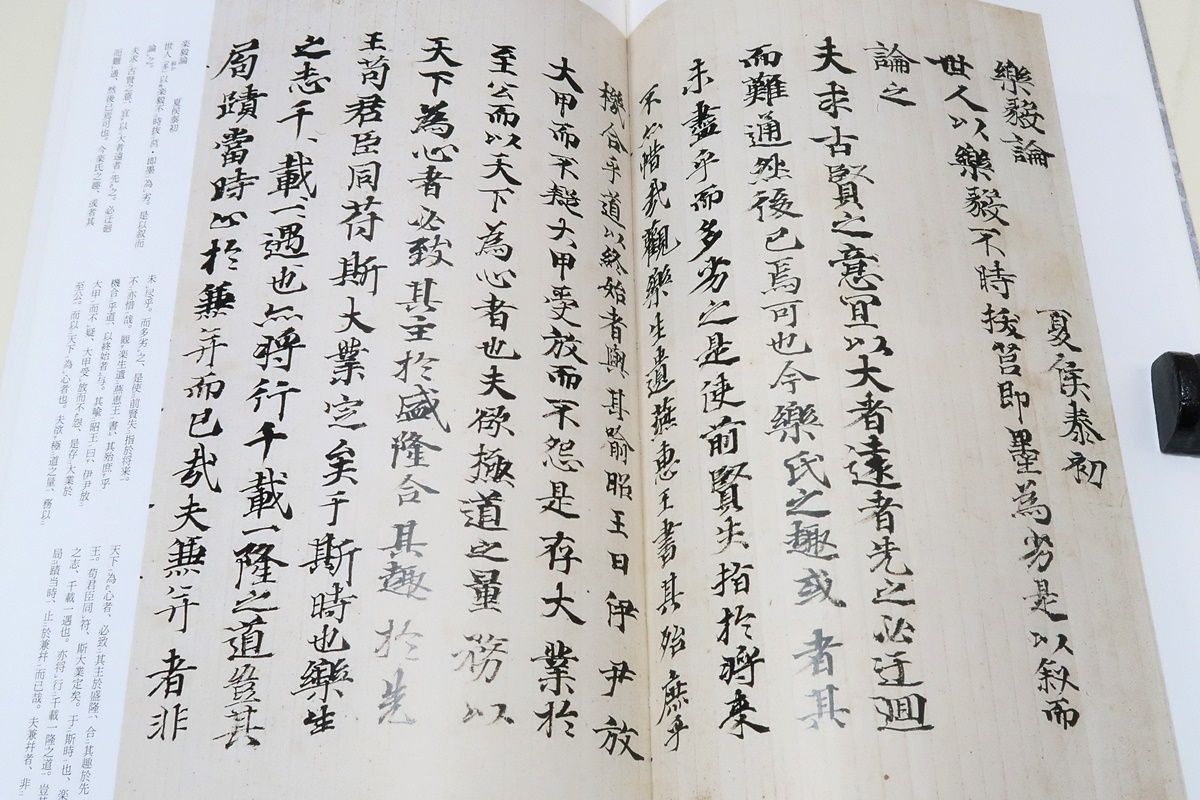 樂毅論 夏侯泰初
世人以樂毅不時拔莒即墨為劣是以叙而
論之
夫求古賢之意宜以大者遠者先之必迂迴
而難通然後已焉可也今樂氏之趣或者其
未盡乎而多劣之是使前賢失指於將来
不亦惜哉觀樂生遺燕惠王書其殆庶乎
機合乎道以終始者與其喻昭王曰伊尹放
大甲而不疑大甲受放而不怨是存大業於
至公而以天下為心者也夫欲極道之量務以
天下為心者必致其主於盛隆合其趣於先
王苟君臣同苻斯大業定矣于斯時也樂生
之志千載一遇也亦將行千載一隆之道豈其
局蹟當時止於兼并而已哉夫兼并者非
楽毅論 夏侯泰初
世人以楽毅不時抜莒・即墨為劣。是以叙而
論之。
夫求古賢之意、宜以大者遠者先之。必迂廻
而難通、然後已焉可也。今楽氏之趣、或者其
未尽乎。而多劣之、是使前賢失指於将来。
不亦惜哉。観楽生遺燕恵王書、其殆庶乎
機合乎道、以終始者与。其喩昭王曰、伊尹放
大甲而不疑、大甲受放而不怨、是存大業於
至公。而以天下為心者也。夫欲極道之量、務以
天下為心者、必致其主於盛隆、合其趣於先
王。苟君臣同符、斯大業定矣。于斯時也、楽
之志、千載一遇也。亦将行千載一隆之道。豈其
局蹟当時、止於兼幷而已哉。夫兼幷者、非